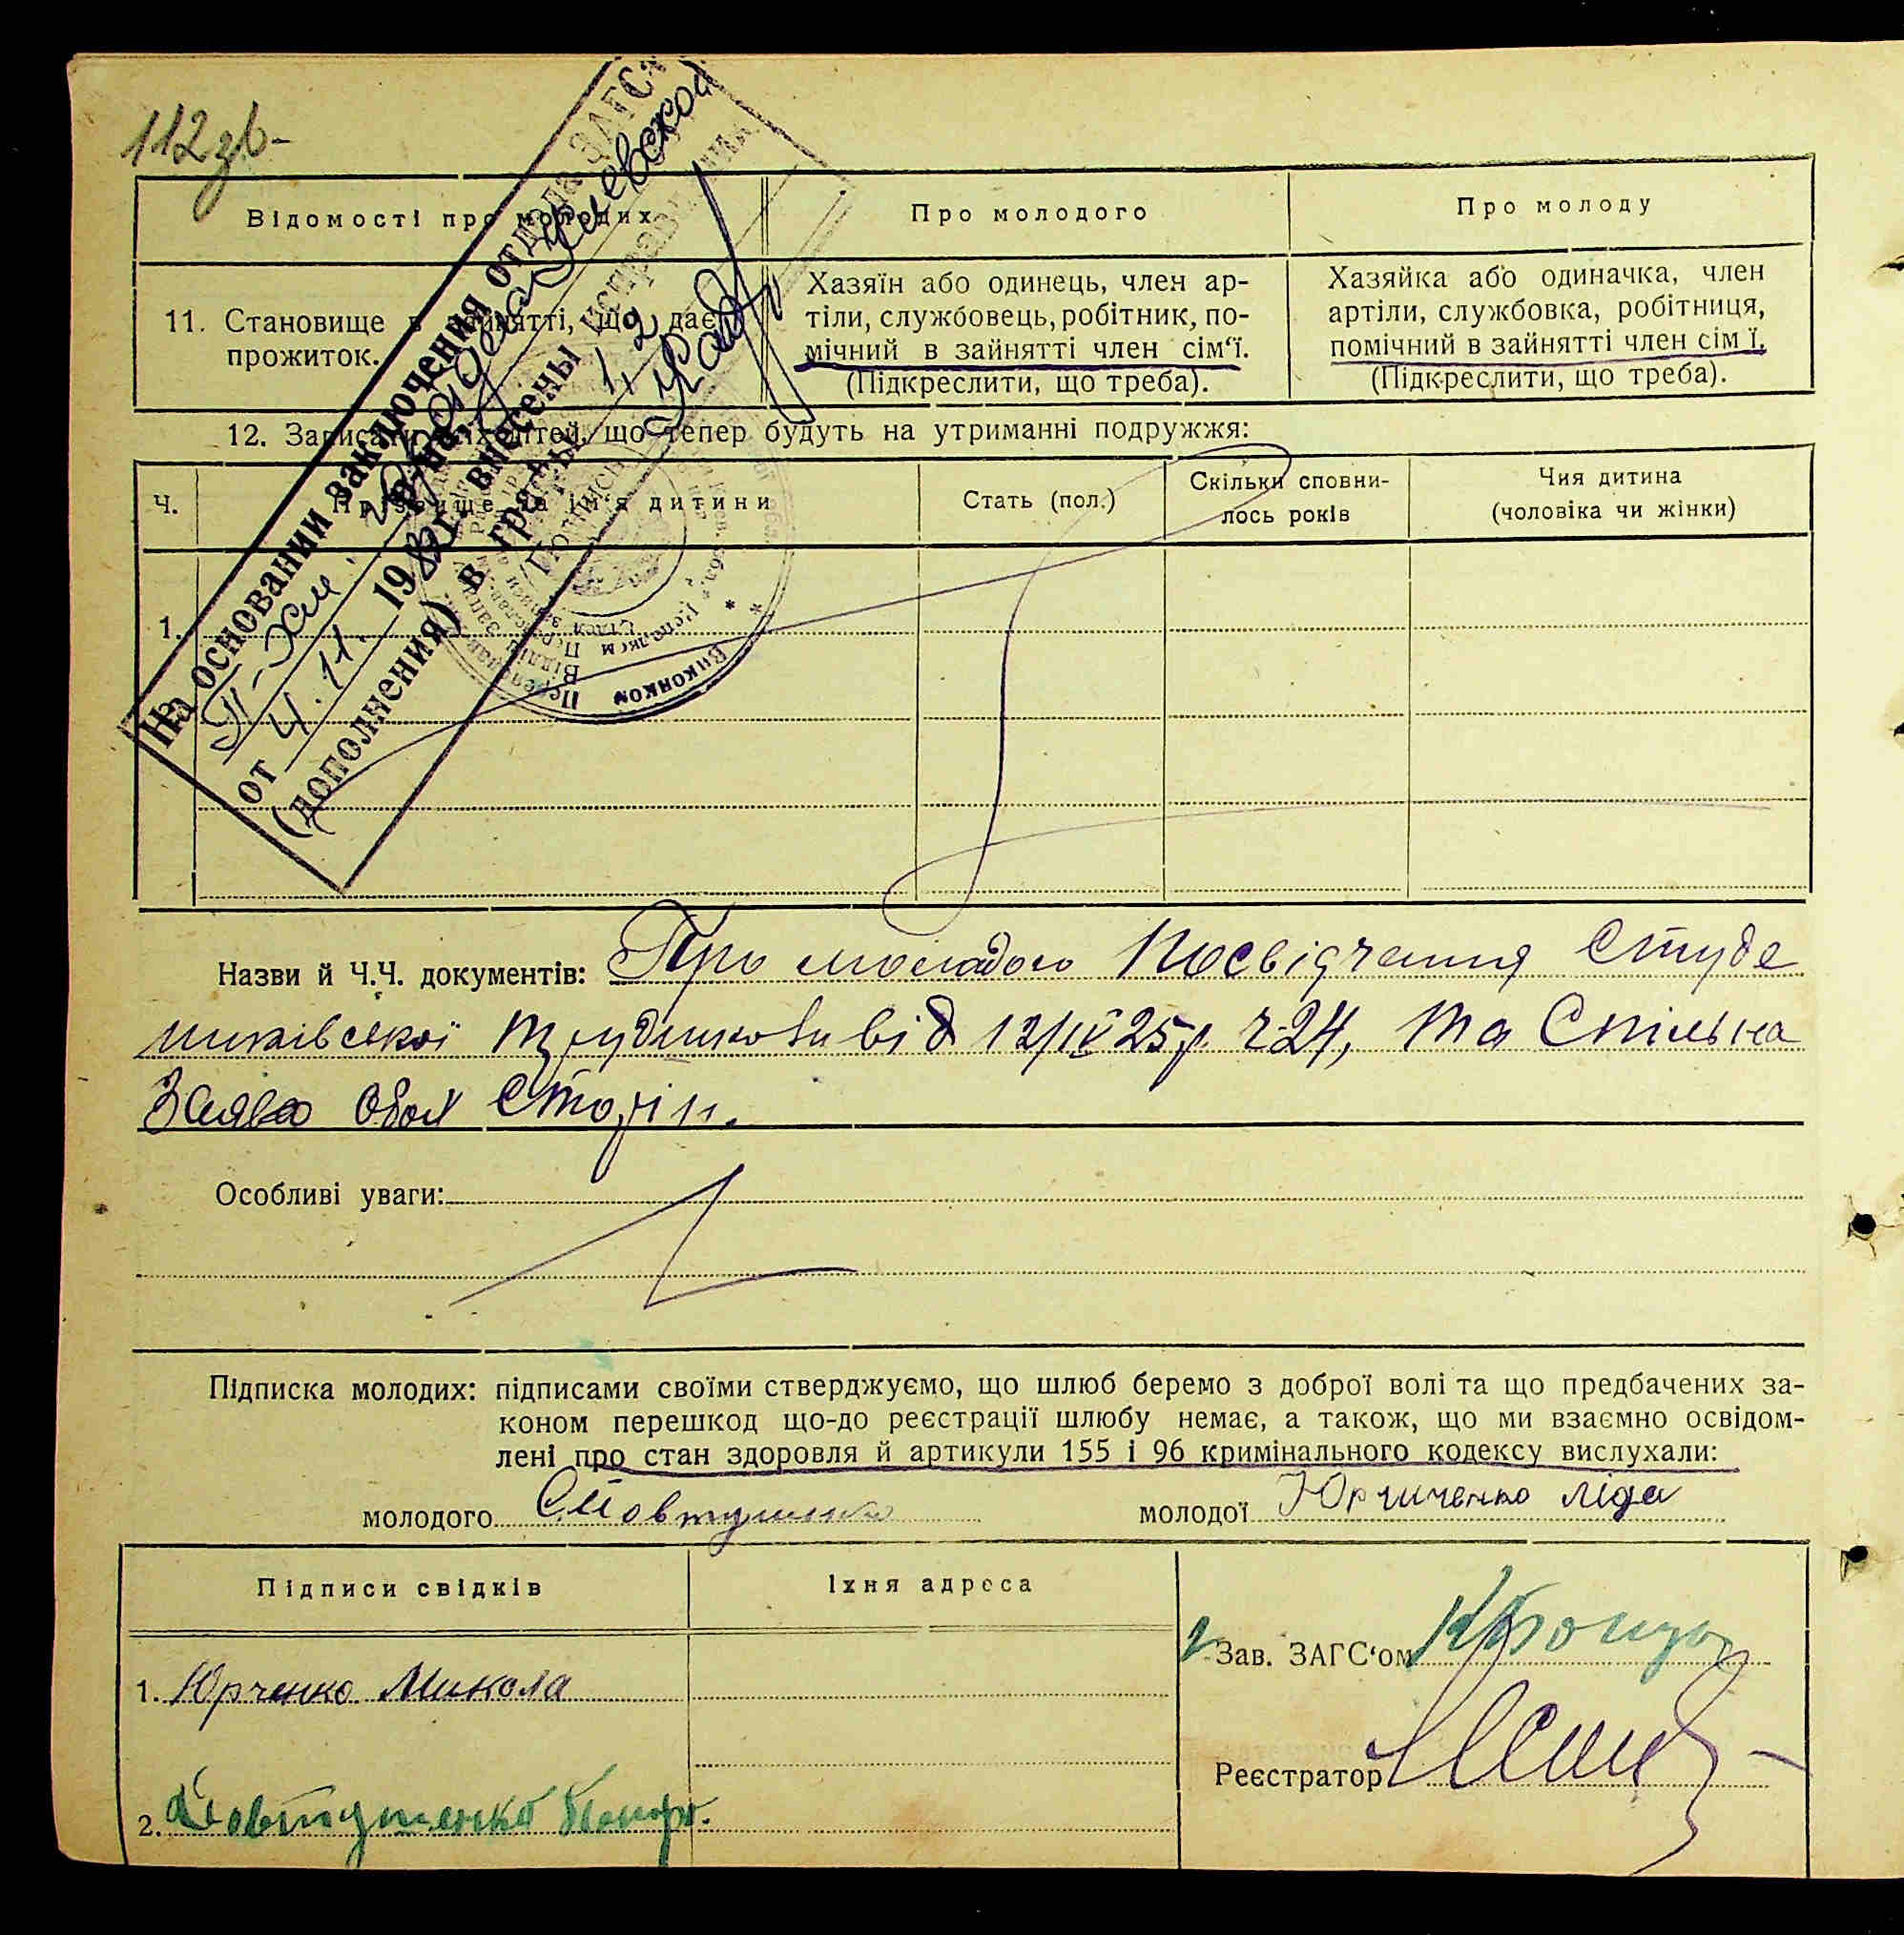 112 зв-
На основании заключения отдела ЗАГС
от 4.11. 198 г. внесены исправления
(дополнения) в графы 1, 2
Виконком
Відомості про молодих
Про молодого
Про молоду
11. Становище в зайнятті, що дає прожиток.
Хазяїн або одинець, член ар-
тіли, службовець, робітник, по-
мічний в зайнятті член сім'ї.
(Підкреслити, що треба).
Хазяйка або одиначка, член
артіли, службовка, робітниця,
помічний в зайнятті член сім ї.
(Підкреслити, що треба).
12. Записати всіх дітей, що тепер будуть на утриманні подружжя:
Ч.
Прізвище та ім'я дитини
Стать (пол.)
Скільки сповни-
лось років
Чия дитина
(чоловіка чи жінки)
1.
Назви й Ч.Ч. документів: Про молодого Посвідчання Студе
никівської від 12/IV 25р. ч-24, та Спільна
Заява обох Сторін.
Особливі уваги:
Підписка молодих: підписами своїми стверджуємо, що шлюб беремо з доброї волі та що предбачених за-
коном перешкод що-до реєстрації шлюбу немає, а також, що ми взаємно освідом-
лені про стан здоровля й артикули 155 і 96 кримінального кодексу вислухали:
молодого
молодої Юрченко Ліда
Підписи свідків
Їхня адреса
Зав. ЗАГС'ом
1. Юрченко Микола
Реєстратор
2. Євтушенко